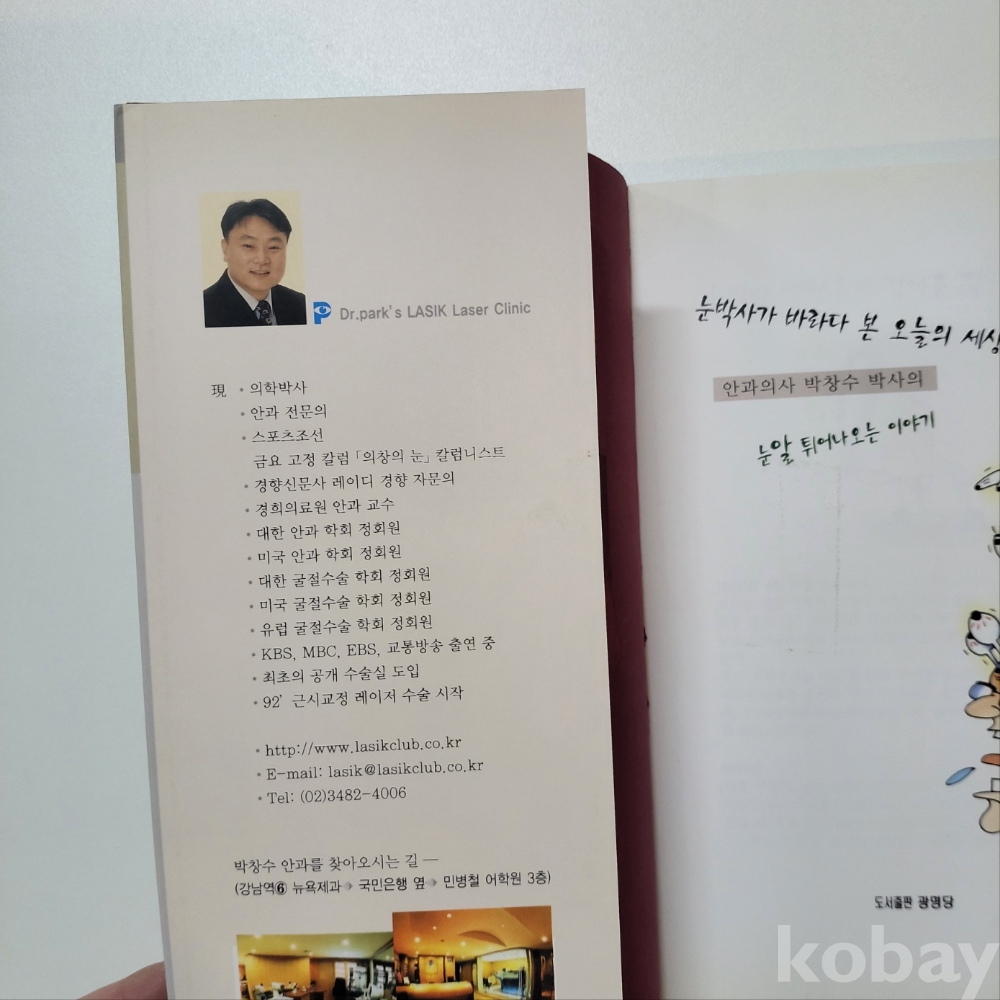 Dr.park's LASIK Laser Clinic
現 • 의학박사
• 안과 전문의
• 스포츠조선
금요 고정 칼럼 「의창의 눈」 칼럼니스트
• 경향신문사 레이디 경향 자문의
• 경희의료원 안과 교수
• 대한 안과 학회 정회원
• 미국 안과 학회 정회원
• 대한 굴절수술 학회 정회원
• 미국 굴절수술 학회 정회원
• 유럽 굴절수술 학회 정회원
• KBS, MBC, EBS, 교통방송 출연 중
• 최초의 공개 수술실 도입
• 92' 근시교정 레이저 수술 시작
• http://www.lasikclub.co.kr
• E-mail: lasik@lasikclub.co.kr
• Tel: (02)3482-4006
박창수 안과를 찾아오시는 길 —
(강남역⑥ 뉴욕제과→ 국민은행 옆→ 민병철 어학원 3층)
눈박사가 바라다 본 오늘의 세상
안과의사 박창수 박사의
눈알 튀어나오는 이야기
도서출판 광명당
kobay